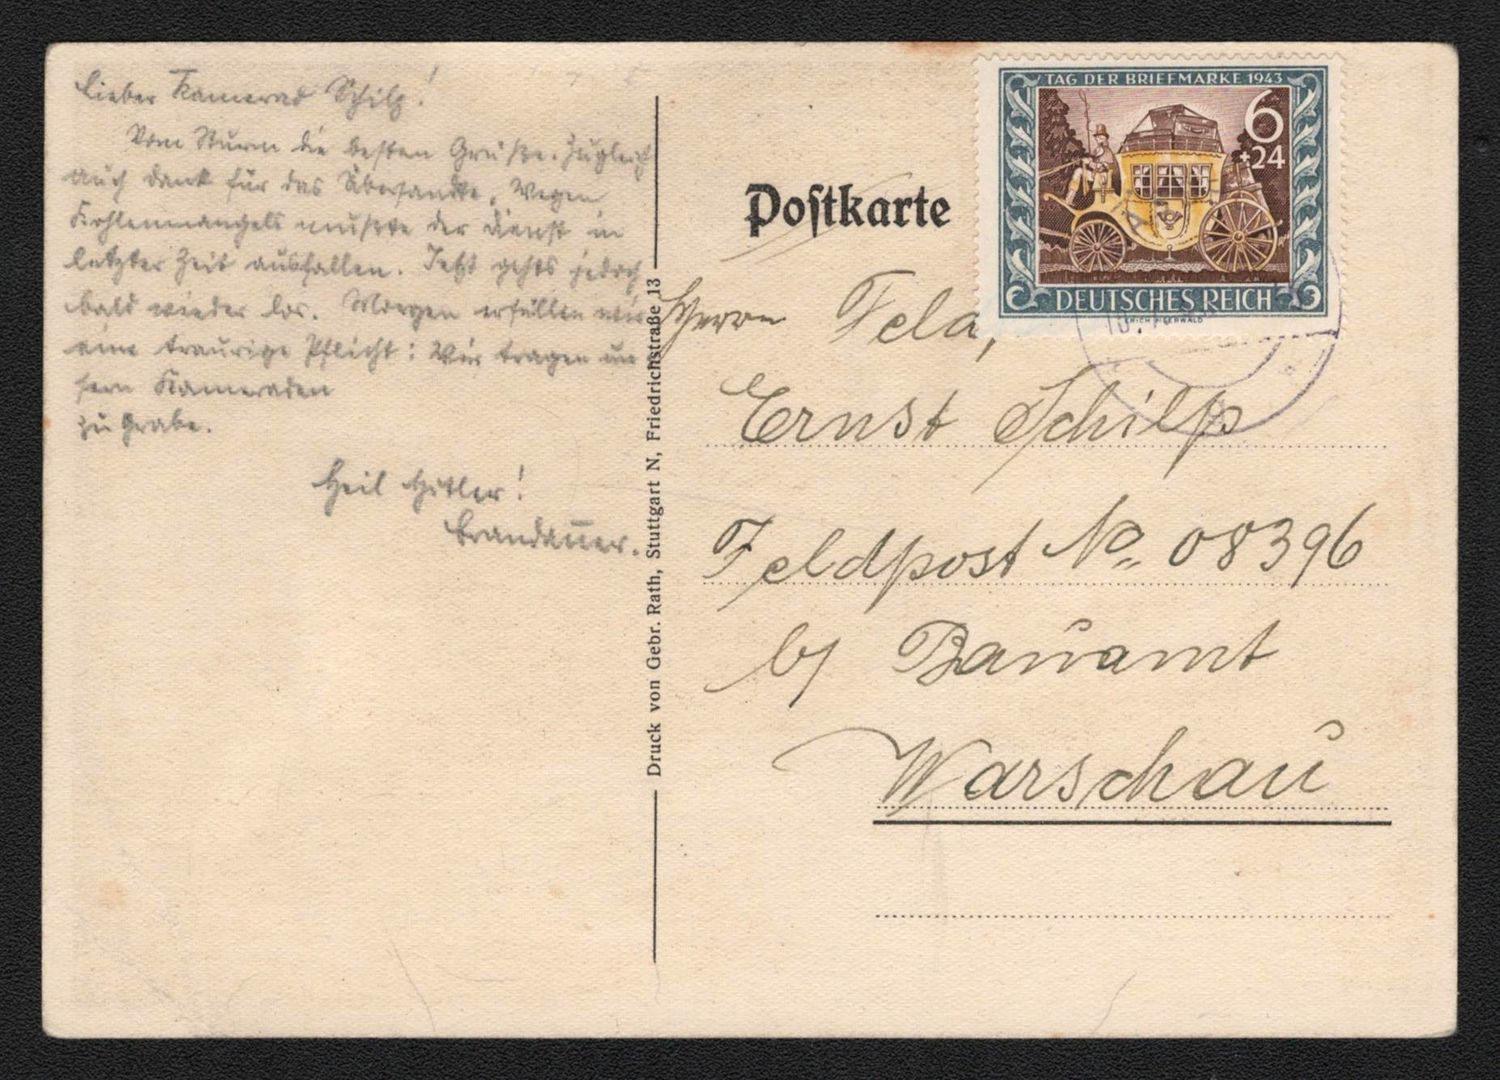 Lieber Kamerad Schilp!
Vom Sturm die besten Grüße. Zugleich
auch Dank für das Übersandte. Wegen
Kohlenmangels mußte der Dienst in
letzter Zeit ausfallen. Jetzt gehts jedoch
bald wieder los. Morgen erfüllen wir
eine traurige Pflicht: Wir tragen un
sern Kameraden
zu Grabe.
Heil Hitler!
Brandauer.
Druck von Gebr. Rath, Stuttgart N, Friedrichstraße 13
Postkarte
TAG DER BRIEFMARKE 1943
6
+24
DEUTSCHES REICH
Herrn
Ernst Schilp
Feldpost No. 08396
b/ Bauamt
Warschau